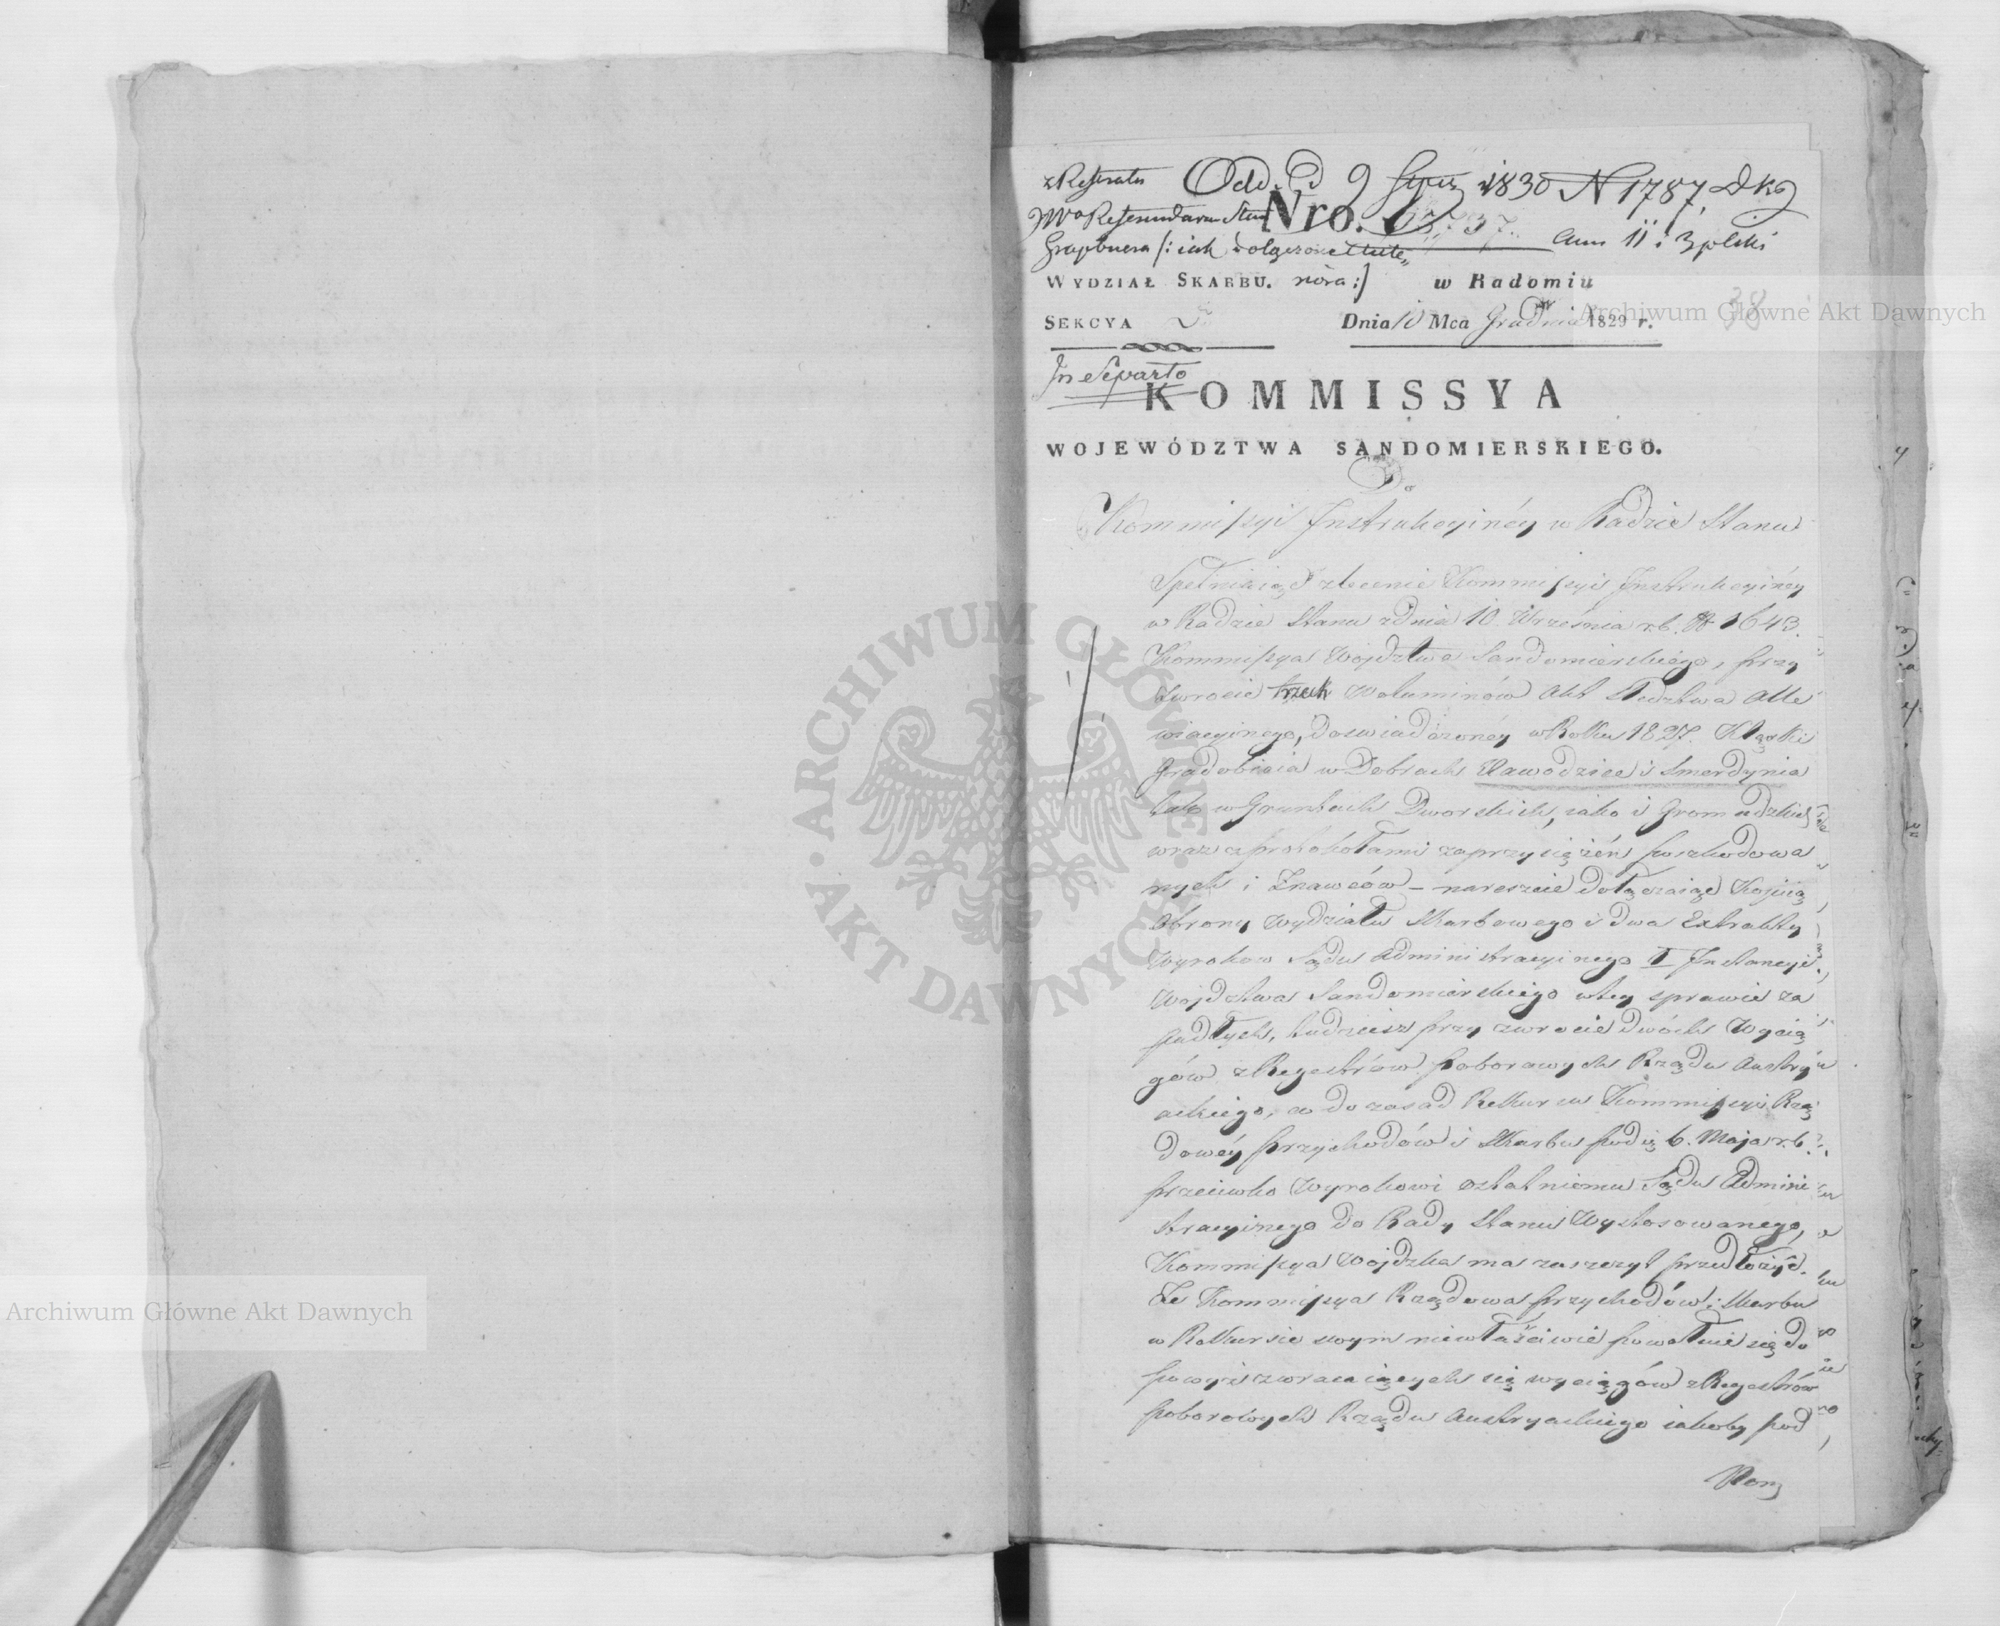 z Referatu
Odd. d 9 Stycz 1830 N 1787 Dkg
JWo Referendarza Stanu
Nro.
cum 11 i 3 plski
WYDZIAŁ SKARBU.
w Radomiu
SEKCYA
Dnia 10 Mca Grudnia 1829 r.
38
In Separato
KOMMISSYA
WOJEWÓDZTWA SANDOMIERSKIEGO.
Do
Kommissyi Instrukcyinéy w Radzie Stanu
Spełniaiąc zlecenie Kommissyi Instrukcyinéy
w Radzie Stanu z dnia 10 Września r.b. N 1643.
Kommissya Wojdztwa Sandomierskiego, przy
zwrocie trzech Woluminów Akt Śledztwa Alle
wiacyinego, doswiadczonéy w Roku 1827. Klęski
Gradobicia w Dobrach Nawodzice i Smerdynia
tak w Gruntach Dworskich, iako i Gromadzkich
wraz z protokółami zaprzysiężeń poszkodowa
nych i Znawców – nareszcie dołączaiąc Kopią
Obrony Wydziału Skarbowego i dwa Extrakty
Wyroków Sądu Administracyinego I Instancyi
Wojdztwa Sandomierskiego wtey sprawie za
padłych, tudziesz przy zwrocie dwóch Wycią
gów z Regestrów poborowych Rządu Austry
ackiego, a do zasad Rekursu Kommissyi Rzą
dowéy Przychodów i Skarbu pod dż 6. Maja r.b.
przeciwko Wyrokowi ostatniemu Sądu Admini
stracyinego do Rady Stanu Wystosowanego,
Kommissya Wojdzka ma zaszczyt przedłożyć.
Że Kommissya Rządowa Przychodów i Skarbu
w Rekursie swym niewłaściwie powołuie się do
powyż zwracaiących się wyciągów z Regestrów
poborowych Rządu Austryackiego iakoby pod
Archiwum Główne Akt Dawnych
Archiwum Główne Akt Dawnych
ARCHIWUM GŁÓWNE AKT DAWNYCH